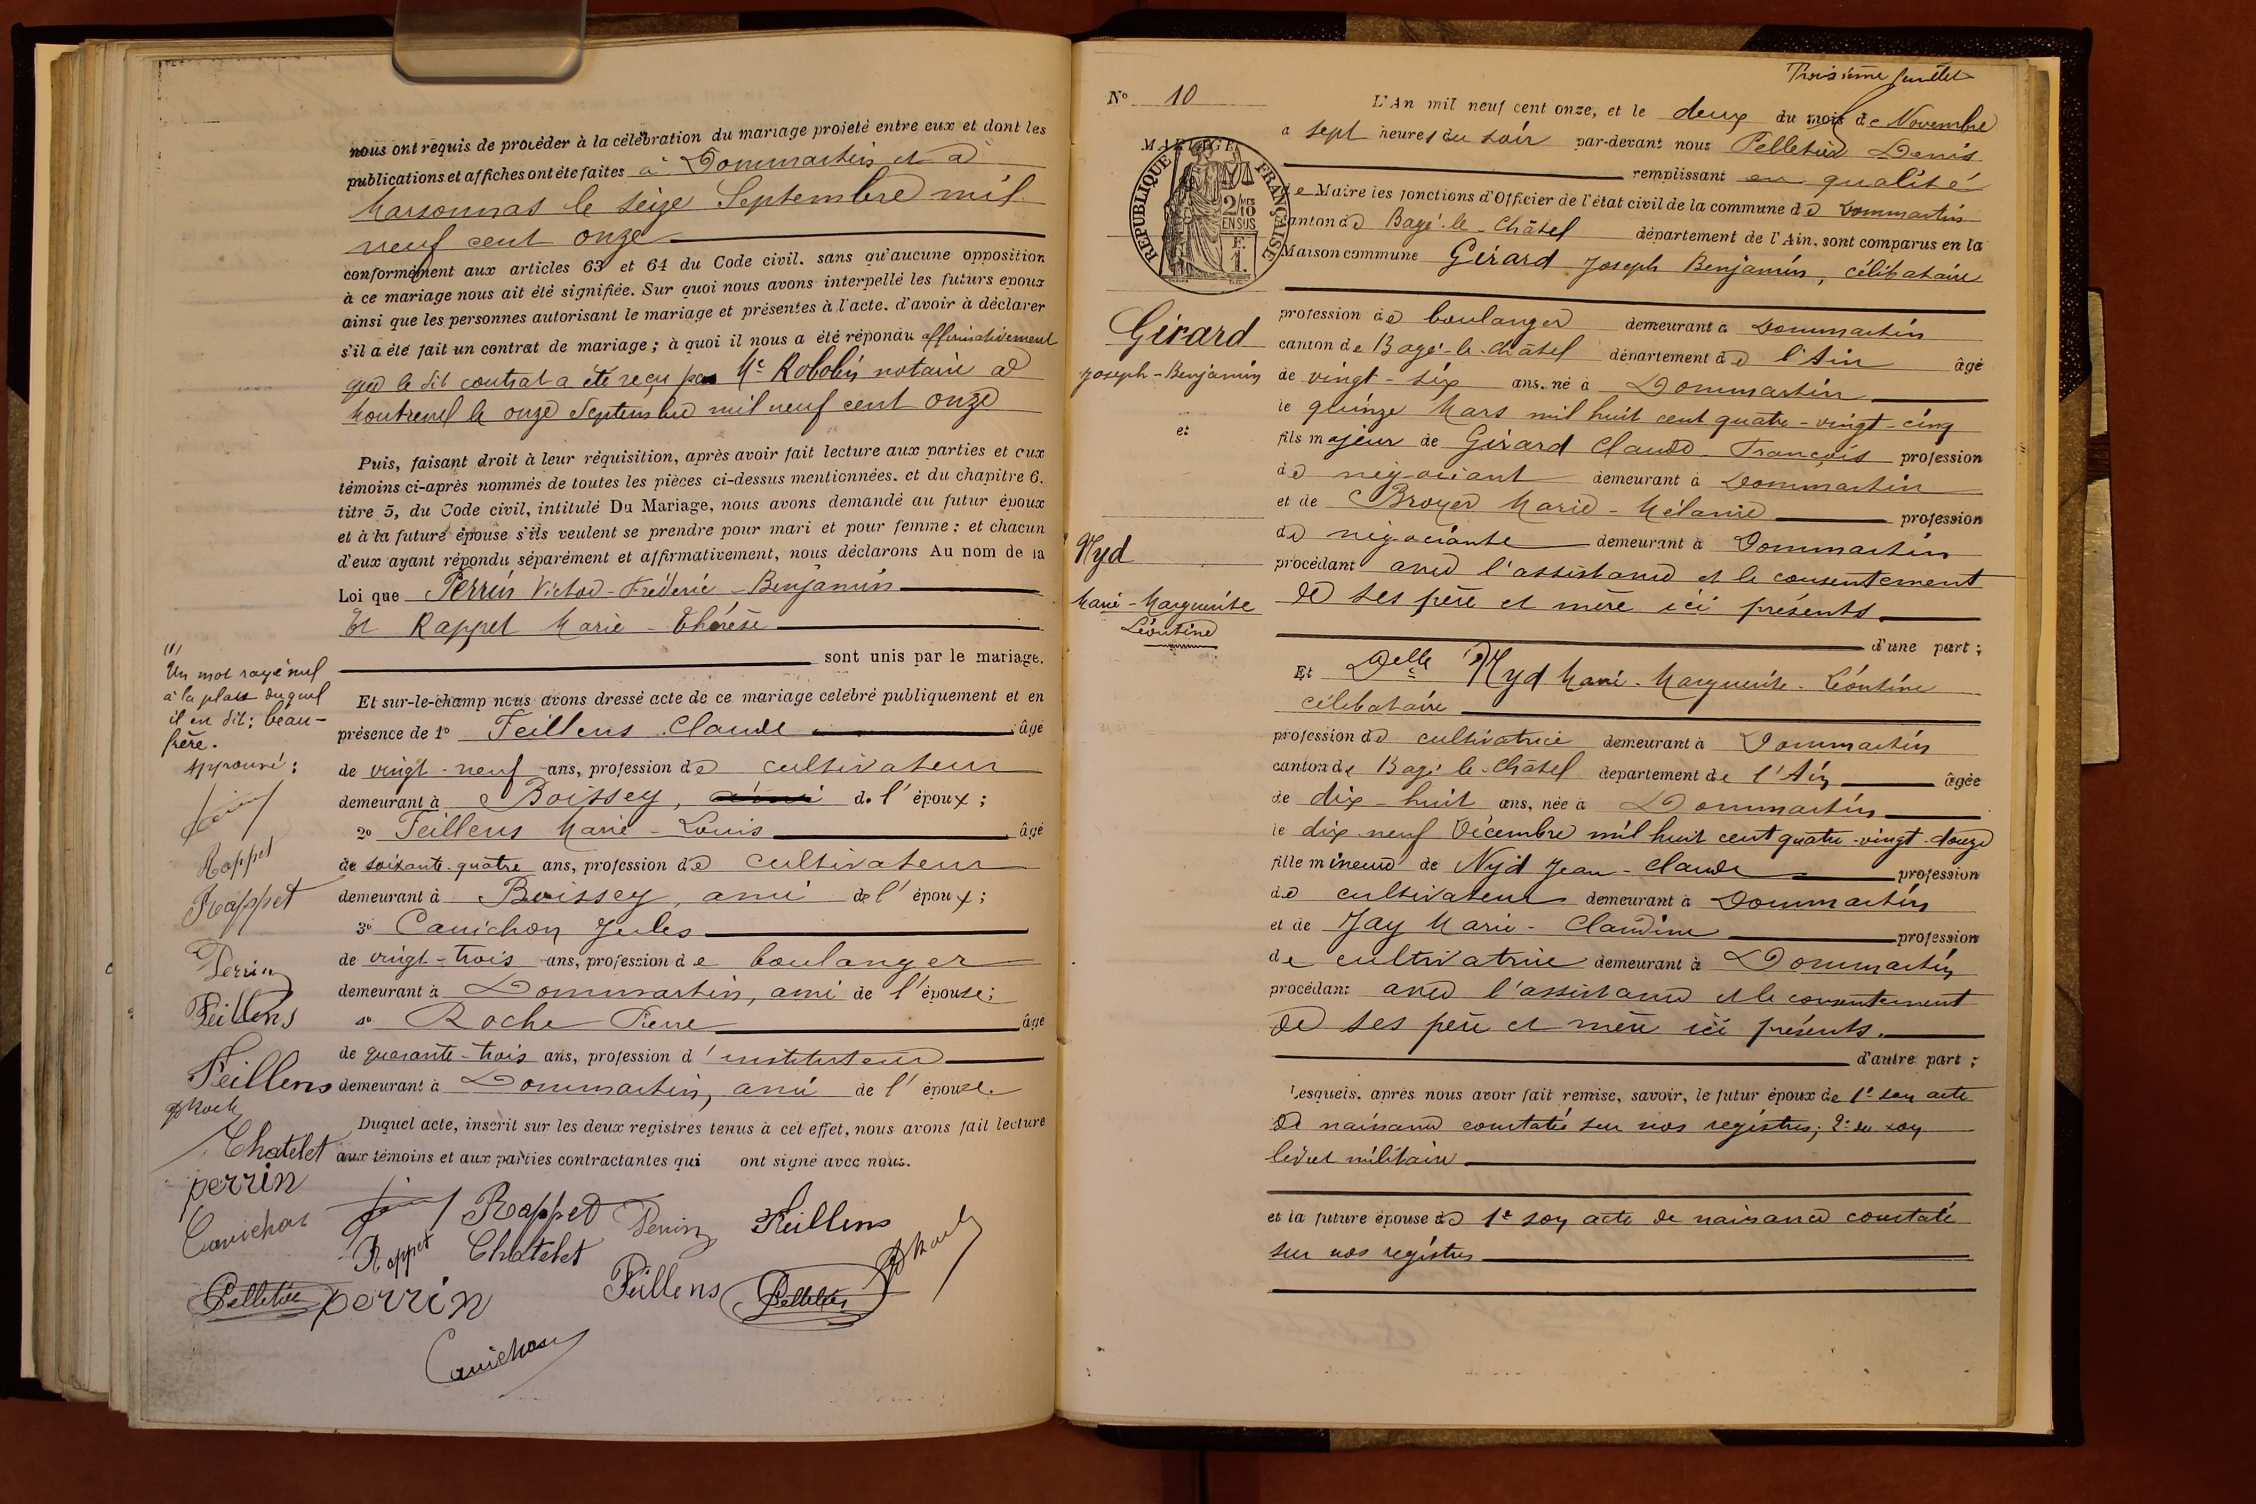 nous ont requis de procéder à la célébration du mariage projeté entre eux et dont les
publications et affiches ont été faites à Dommartin et à
Marsonnas le seize Septembre mil
neuf cent onze
conformément aux articles 63 et 64 du Code civil. sans qu'aucune opposition
à ce mariage nous ait été signifiée. Sur quoi nous avons interpellé les futurs époux
ainsi que les personnes autorisant le mariage et présentes à l'acte. d'avoir à déclarer
s'il a été fait un contrat de mariage ; à quoi il nous a été répondu affirmativement
que le dit contrat a été reçu par Me Robolin notaire à
Montrevel le onze Septembre mil neuf cent onze
Puis, faisant droit à leur réquisition, après avoir fait lecture aux parties et aux
témoins ci-après nommés de toutes les pièces ci-dessus mentionnées. et du chapitre 6.
titre 5, du Code civil, intitulé Du Mariage, nous avons demandé au futur époux
et à la future épouse s'ils veulent se prendre pour mari et pour femme ; et chacun
d'eux ayant répondu séparément et affirmativement, nous déclarons Au nom de la
Loi que Perrin Victor-Fréderic-Benjamin
Et Rappet Marie-Thérèse
sont unis par le mariage.
(1)
Un mot rayé nul
à la place duquel
il en dit: beau-
frère.
Approuvé :
Rappet
Rappet
Perrin
Feillens
Feillens
Chatelet
perrin
Canichon
Et sur-le-champ nous avons dressé acte de ce mariage célébré publiquement et en
présence de 1o Feillens Claude âgé
de vingt-neuf ans, profession de cultivateur
demeurant à Boissey, ami de l'époux ;
2o Feillens Marie-Louis âgé
de soixante-quatre ans, profession de cultivateur
demeurant à Boissey, ami de l'époux ;
3o Canichon Jules
de vingt-trois ans, profession de boulanger
demeurant à Dommartin, ami de l'épouse ;
4o Roche Pierre âgé
de quarante-trois ans, profession d'instituteur
demeurant à Dommartin, ami de l'épouse.
Duquel acte, inscrit sur les deux registres tenus à cet effet, nous avons fait lecture
aux témoins et aux parties contractantes qui ont signé avec nous.
Rappet Perrin Feillens
Rappet Chatelet
Pelletier perrin Feillens Pelletier
Canichon
Troisième feuillet
No 10
MARIAGE
RÉPUBLIQUE FRANÇAISE
2/10 EN SUS
F.
1.
Girard
Joseph-Benjamin
et
Nyd
Marie-Marguerite
Léontine
L'An mil neuf cent onze, et le deux du mois de Novembre
à sept heures du soir par-devant nous Pelletier Denis
remplissant en qualité
de Maire les fonctions d'Officier de l'état civil de la commune de Dommartin
canton de Bagé-le-Châtel département de l'Ain. sont comparus en la
Maison commune Girard Joseph Benjamin, célibataire
profession de boulanger demeurant à Dommartin
canton de Bagé-le-Châtel département de l'Ain âgé
de vingt-six ans. né à Dommartin
le quinze Mars mil huit cent quatre-vingt-cinq
fils majeur de Girard Claude-François profession
de négociant demeurant à Dommartin
et de Broyer Marie-Mélanie profession
de négociante demeurant à Dommartin
procédant avec l'assistance et le consentement
de ses père et mère ici présents
d'une part ;
Et Delle Nyd Marie-Marguerite-Léontine
célibataire
profession de cultivatrice demeurant à Dommartin
canton de Bagé-le-Châtel département de l'Ain âgée
de dix-huit ans, née à Dommartin
le dix neuf Décembre mil huit cent quatre-vingt-douze
fille mineure de Nyd Jean-Claude profession
de cultivateur demeurant à Dommartin
et de Jay Marie-Claudine profession
de cultivatrice demeurant à Dommartin
procédant avec l'assistance et le consentement
de ses père et mère ici présents.
d'autre part ;
Lesquels. après nous avoir fait remise, savoir, le futur époux de 1o son acte
de naissance constatée sur nos registres; 2o de son
livret militaire
et la future épouse de 1o son acte de naissance constaté
sur nos registres